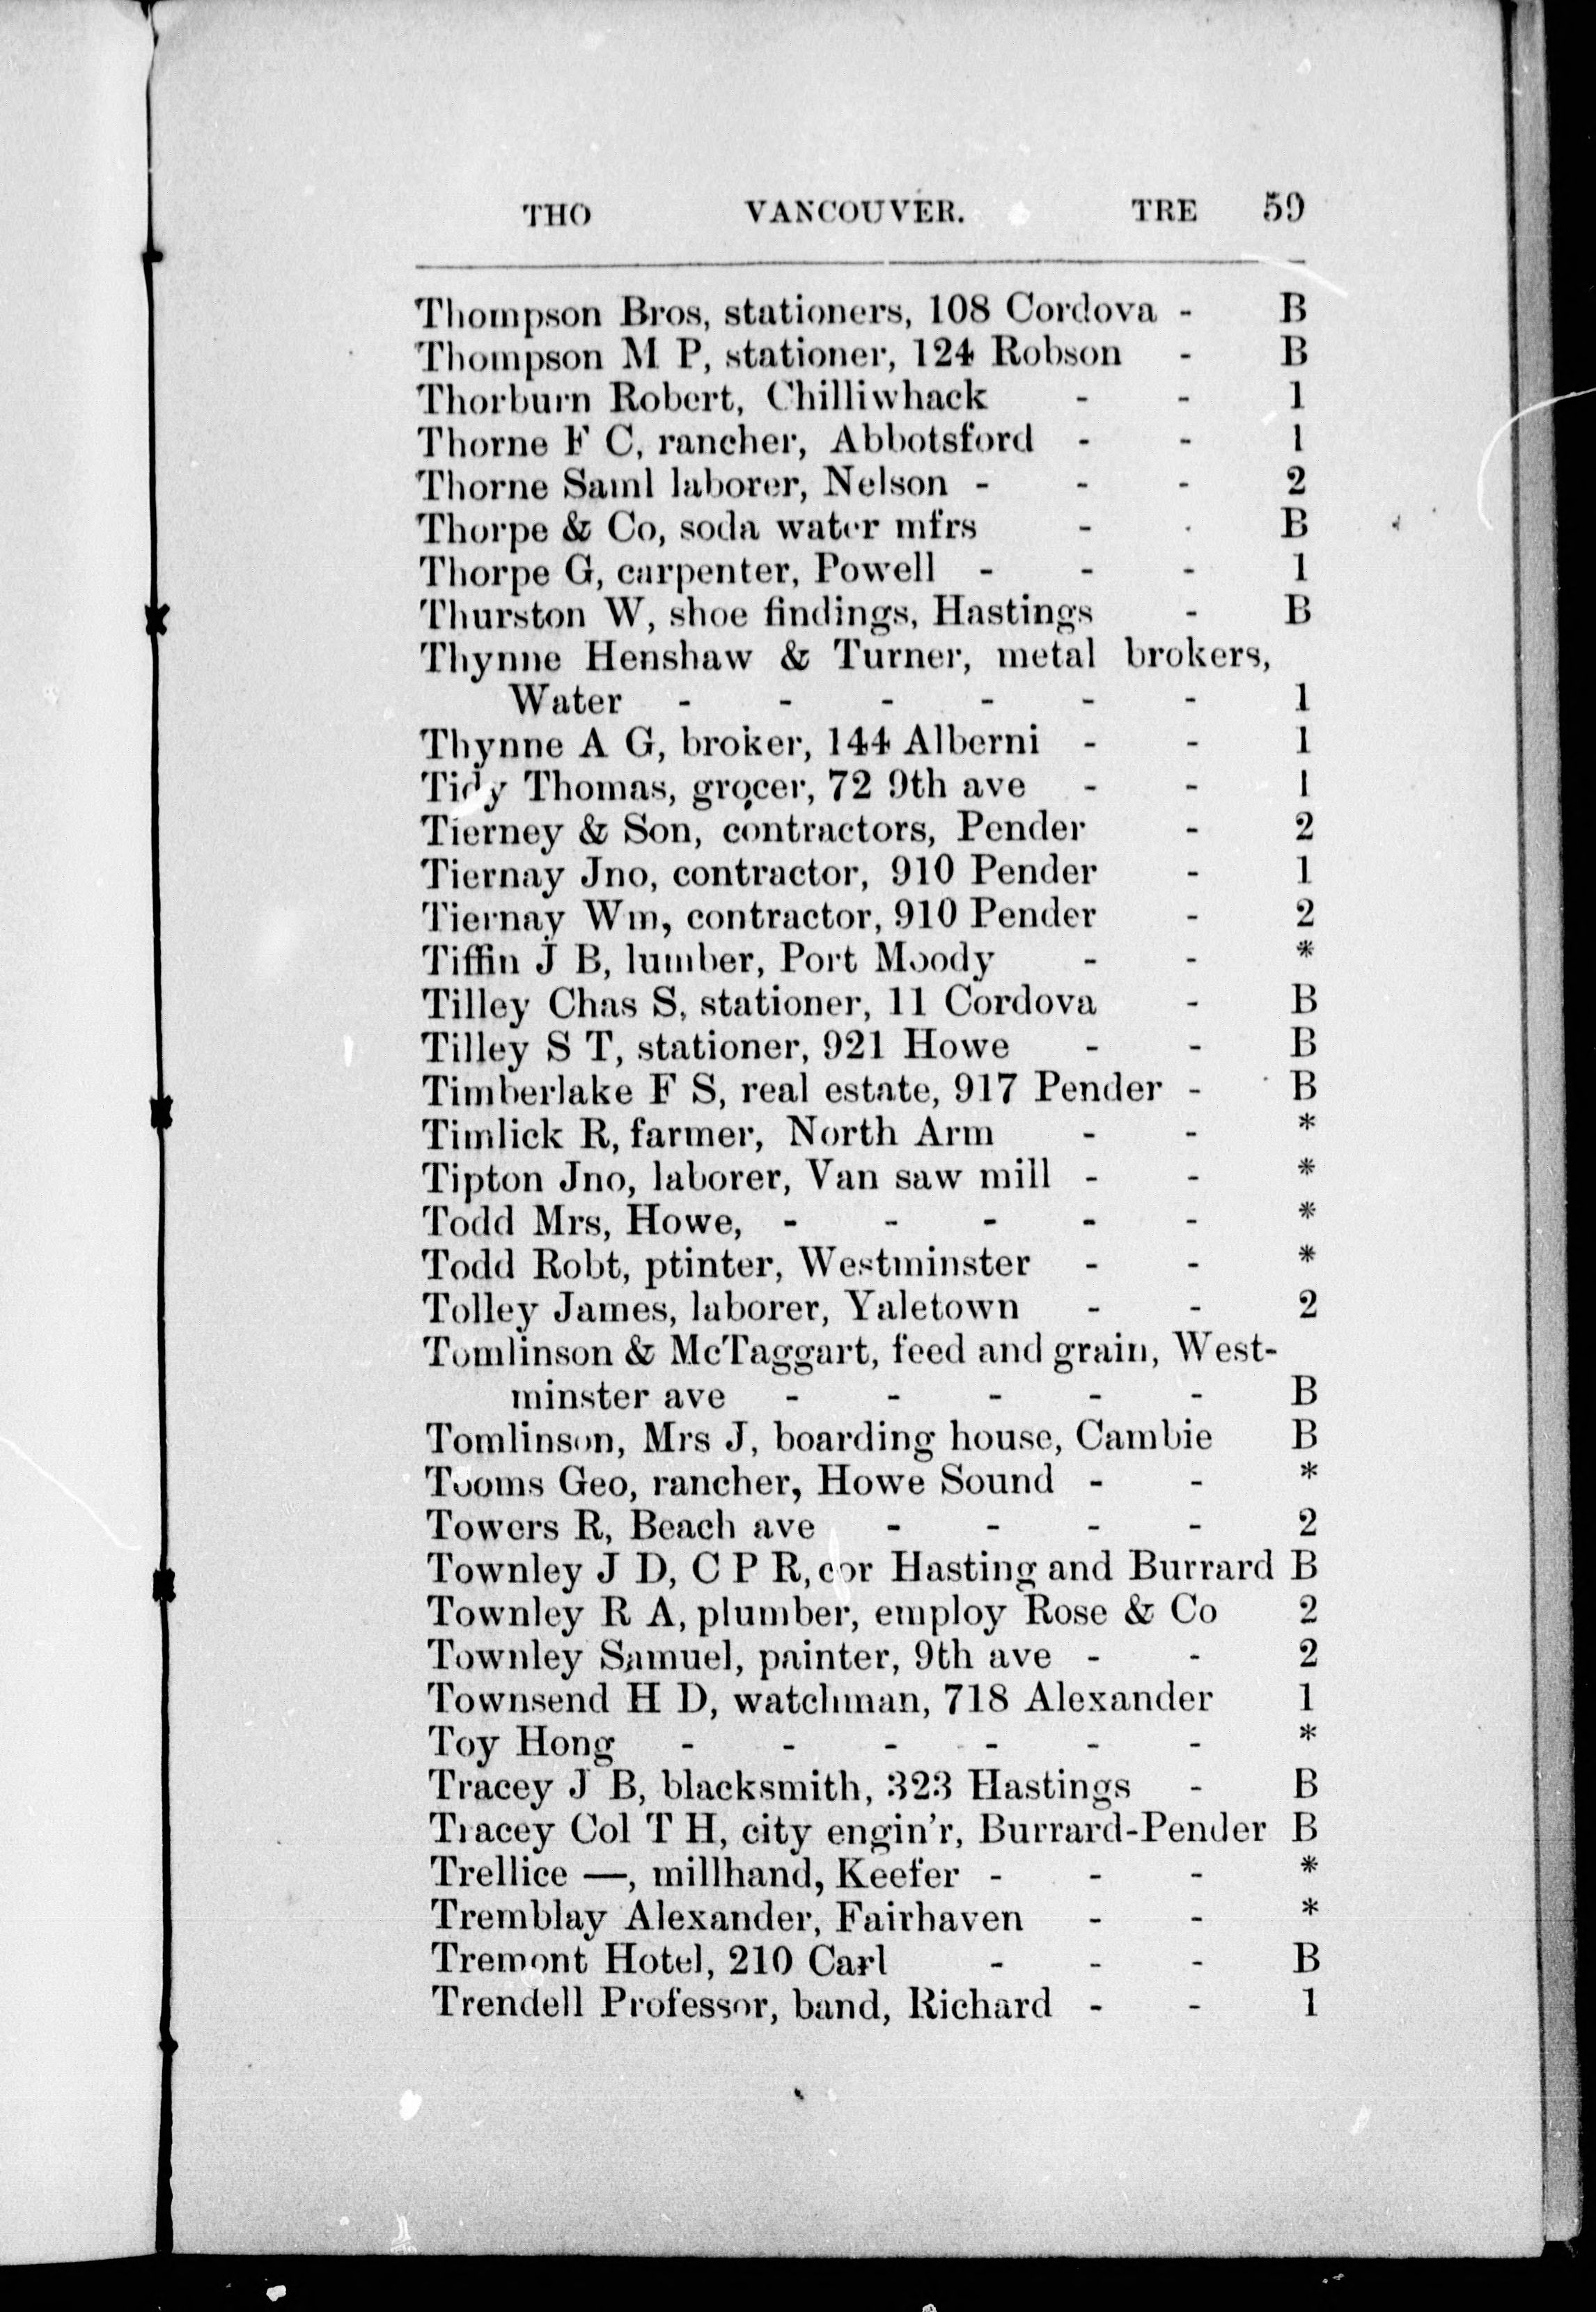 THO VANCOUVER. TRE 59
Thompson Bros, stationers, 108 Cordova - B
Thompson M P, stationer, 124 Robson - B
Thorburn Robert, Chilliwhack - - 1
Thorne F C, rancher, Abbotsford - - 1
Thorne Saml laborer, Nelson - - - 2
Thorpe & Co, soda water mfrs - - B
Thorpe G, carpenter, Powell - - - 1
Thurston W, shoe findings, Hastings - B
Thynne Henshaw & Turner, metal brokers,
Water - - - - - - 1
Thynne A G, broker, 144 Alberni - - 1
Tidy Thomas, grocer, 72 9th ave - - 1
Tierney & Son, contractors, Pender - 2
Tiernay Jno, contractor, 910 Pender - 1
Tiernay Wm, contractor, 910 Pender - 2
Tiffin J B, lumber, Port Moody - - *
Tilley Chas S, stationer, 11 Cordova - B
Tilley S T, stationer, 921 Howe - - B
Timberlake F S, real estate, 917 Pender - B
Timlick R, farmer, North Arm - - *
Tipton Jno, laborer, Van saw mill - - *
Todd Mrs, Howe, - - - - - *
Todd Robt, ptinter, Westminster - - *
Tolley James, laborer, Yaletown - - 2
Tomlinson & McTaggart, feed and grain, West-
minster ave - - - - - B
Tomlinson, Mrs J, boarding house, Cambie B
Tooms Geo, rancher, Howe Sound - - *
Towers R, Beach ave - - - - 2
Townley J D, C P R, cor Hasting and Burrard B
Townley R A, plumber, employ Rose & Co 2
Townley Samuel, painter, 9th ave - - 2
Townsend H D, watchman, 718 Alexander 1
Toy Hong - - - - - - *
Tracey J B, blacksmith, 323 Hastings - B
Tracey Col T H, city engin'r, Burrard-Pender B
Trellice —, millhand, Keefer - - - *
Tremblay Alexander, Fairhaven - - *
Tremont Hotel, 210 Carl - - - B
Trendell Professor, band, Richard - - 1